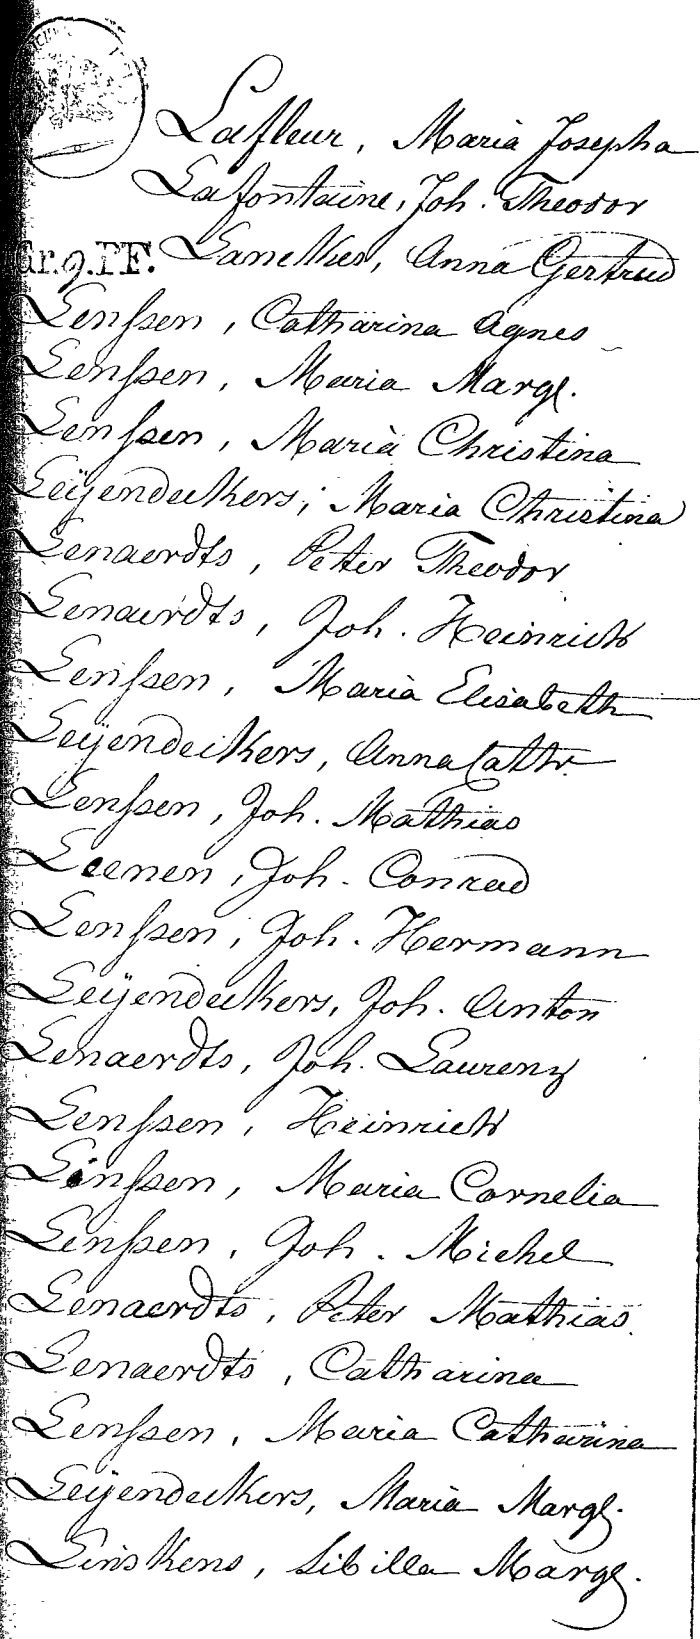 Lafleur, Maria Josepha
Lafontaine, Joh. Theodor
Gr. 9. PF.
Lanckes, Anna Gertrud
Lenssen, Catharina Agnes
Lenssen, Maria Margt.
Lenssen, Maria Christina
Leÿendeckers, Maria Christina
Lenaerdts, Peter Theodor
Lenaerdts, Joh. Heinrich
Lenssen, Maria Elisabeth
Leÿendeckers, Anna Cathr.
Lenssen, Joh. Mathias
Leenen, Joh. Conrad
Lenssen, Joh. Hermann
Leÿendeckers, Joh. Anton
Lenaerdts, Joh. Laurenz
Lenssen, Heinrich
Linssen, Maria Cornelia
Lenssen, Joh. Michel
Lenaerdts, Peter Mathias
Lenaerdts, Catharina
Lenssen, Maria Catharina
Leÿendeckers, Maria Margt.
Linskens, Sibilla Margt.